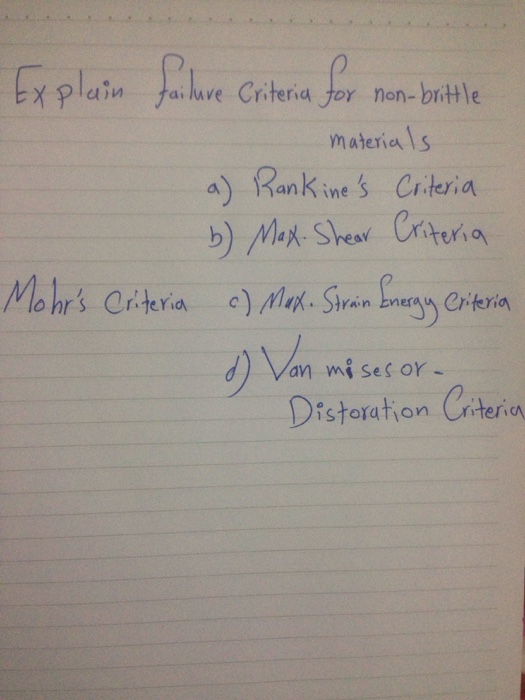 Explain failure Criteria for non-brittle
materials
a) Rankine's Criteria
b) Max. Shear Criteria
Mohr's Criteria c) Max. Strain Energy Criteria
d) Van mises or -
Distoration Criteria